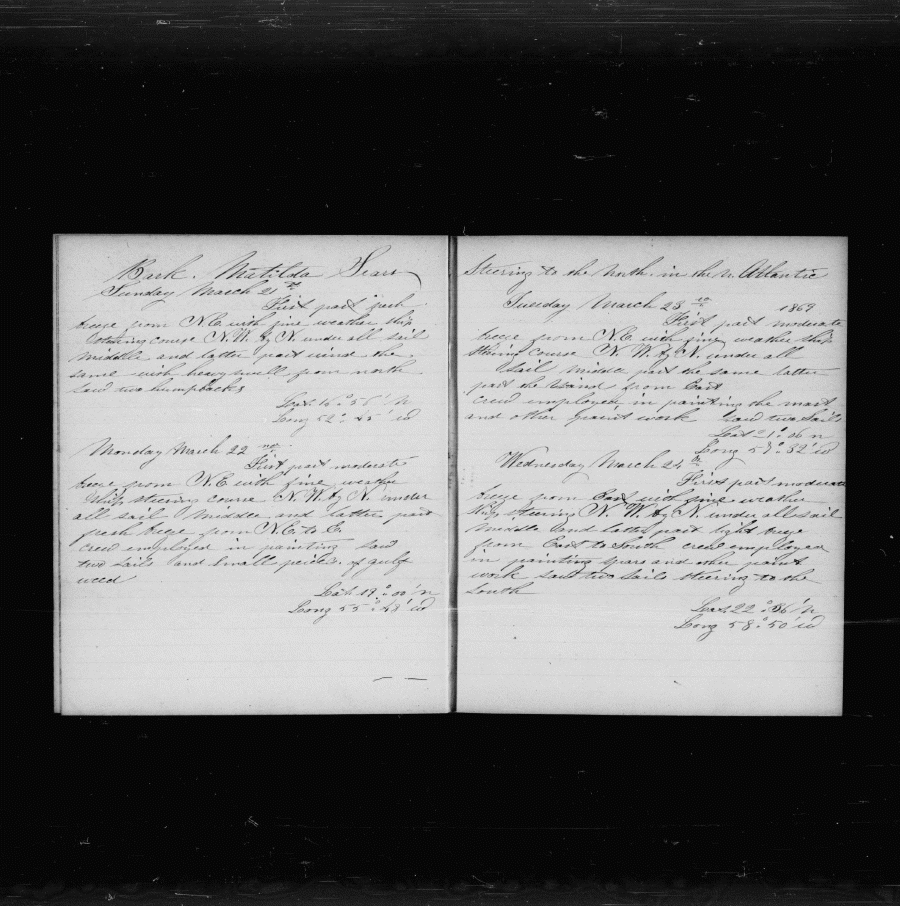 Bark. Matilda Sears
Sunday March 21st
First part fresh
breeze from N.E. with fine weather ship
steering course N.W. by N. under all sail
middle and latter part wind the
same with heavy swell from north
saw two humpbacks
Lat 16° 51' N
Long 52° 25' W
Monday March 22nd
First part moderate
breeze from N.E. with fine weather
Ship steering course N.W. by N. under
all sail Middle and latter part
fresh breeze from N.E. to E.
crew employed in painting saw
two sails and small peices of gulf
weed
Lat 19° 00' N
Long 55° 28' W
Steering to the North. in the N. Atlantic
Tuesday March 23rd 1869
First part moderate
breeze from N.E. with fine weather ship
steering course N.W. by N. under all
sail middle part the same latter
part the wind from East
crew employed in painting the mast
and other paint work saw two sails
Lat 21° 06 N
Long 57° 32' W
Wednesday March 24th
First part moderate
breeze from East with fine weather
ship steering N.W. by N. under all sail
middle and latter part light breeze
from East to South crew employed
in painting spars and other paint
work saw two sails steering to the
South
Lat 22° 36' N
Long 58° 50' W